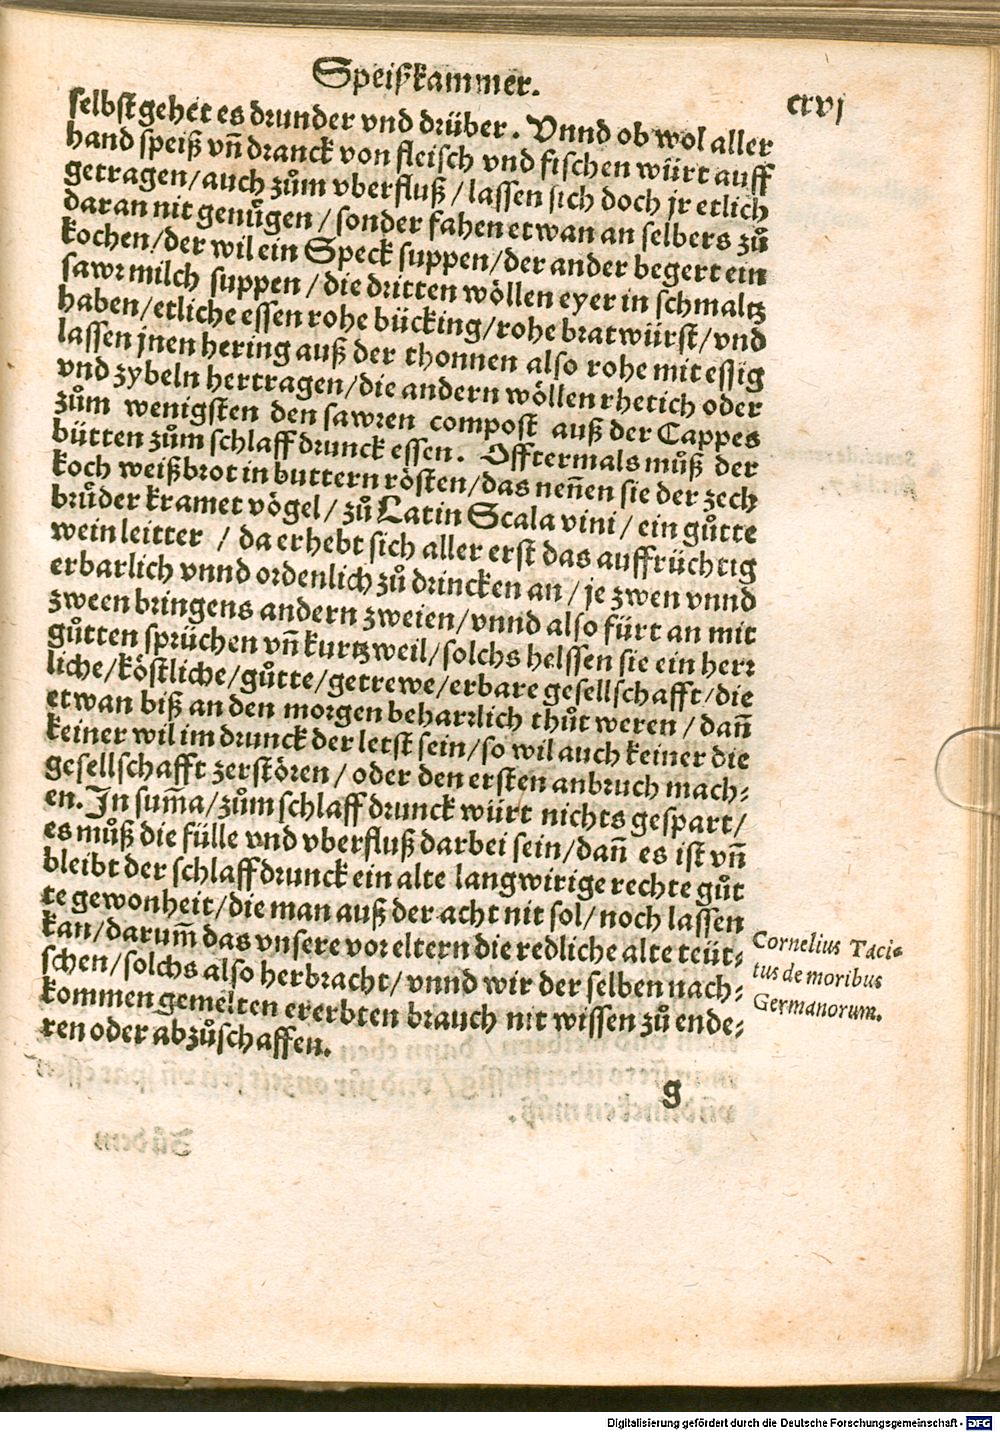 Speißkammer.
cxvj
selbst gehet es drunder vnd drüber. Vnnd ob wol aller
hand speiß vn̄ dranck von fleisch vnd fischen würt auff
getragen/auch zům vberfluß/lassen sich doch jr etlich
daran nit genůgen/sonder fahen etwan an selbers zů
kochen/der wil ein Speck suppen/der ander begert ein
sawr milch suppen/die dritten wöllen eyer in schmaltz
haben/etliche essen rohe bücking/rohe bratwürst/vnd
lassen jnen hering auß der thonnen also rohe mit essig
vnd zybeln hertragen/die andern wöllen rhetich oder
zům wenigsten den sawren compost auß der Cappes
bütten zům schlaffdrunck essen. Offtermals můß der
koch weißbrot in buttern rösten/das nen̄en sie der zech
brůder kramet vögel/zů Latin Scala vini/ein gůtte
wein leitter / da erhebt sich aller erst das auffrüchtig
erbarlich vnnd ordenlich zů drincken an/je zwen vnnd
zween bringens andern zweien/vnnd also fürt an mit
gůtten sprüchen vn̄ kurtzweil/solchs helssen sie ein herr
liche/köstliche/gůtte/getrewe/erbare gesellschafft/die
etwan biß an den morgen beharrlich thůt weren/dan̄
keiner wil im drunck der letst sein/so wil auch keiner die
gesellschafft zerstören/oder den ersten anbruch mach⸗
en. In sum̄a/zům schlaffdrunck würt nichts gespart/
es můß die fülle vnd vberfluß darbei sein/dan̄ es ist vn̄
bleibt der schlaffdrunck ein alte langwirige rechte gůt
te gewonheit/die man auß der acht nit sol/noch lassen
kan/darum̄ das vnsere voreltern die redliche alte teüt⸗
schen/solchs also herbracht/vnnd wir der selben nach⸗
kommen gemelten ererbten brauch nit wissen zů ende⸗
ren oder abzůschaffen.
Cornelius Taci⸗
tus de moribus
Germanorum.
g
Digitalisierung gefördert durch die Deutsche Forschungsgemeinschaft - DFG